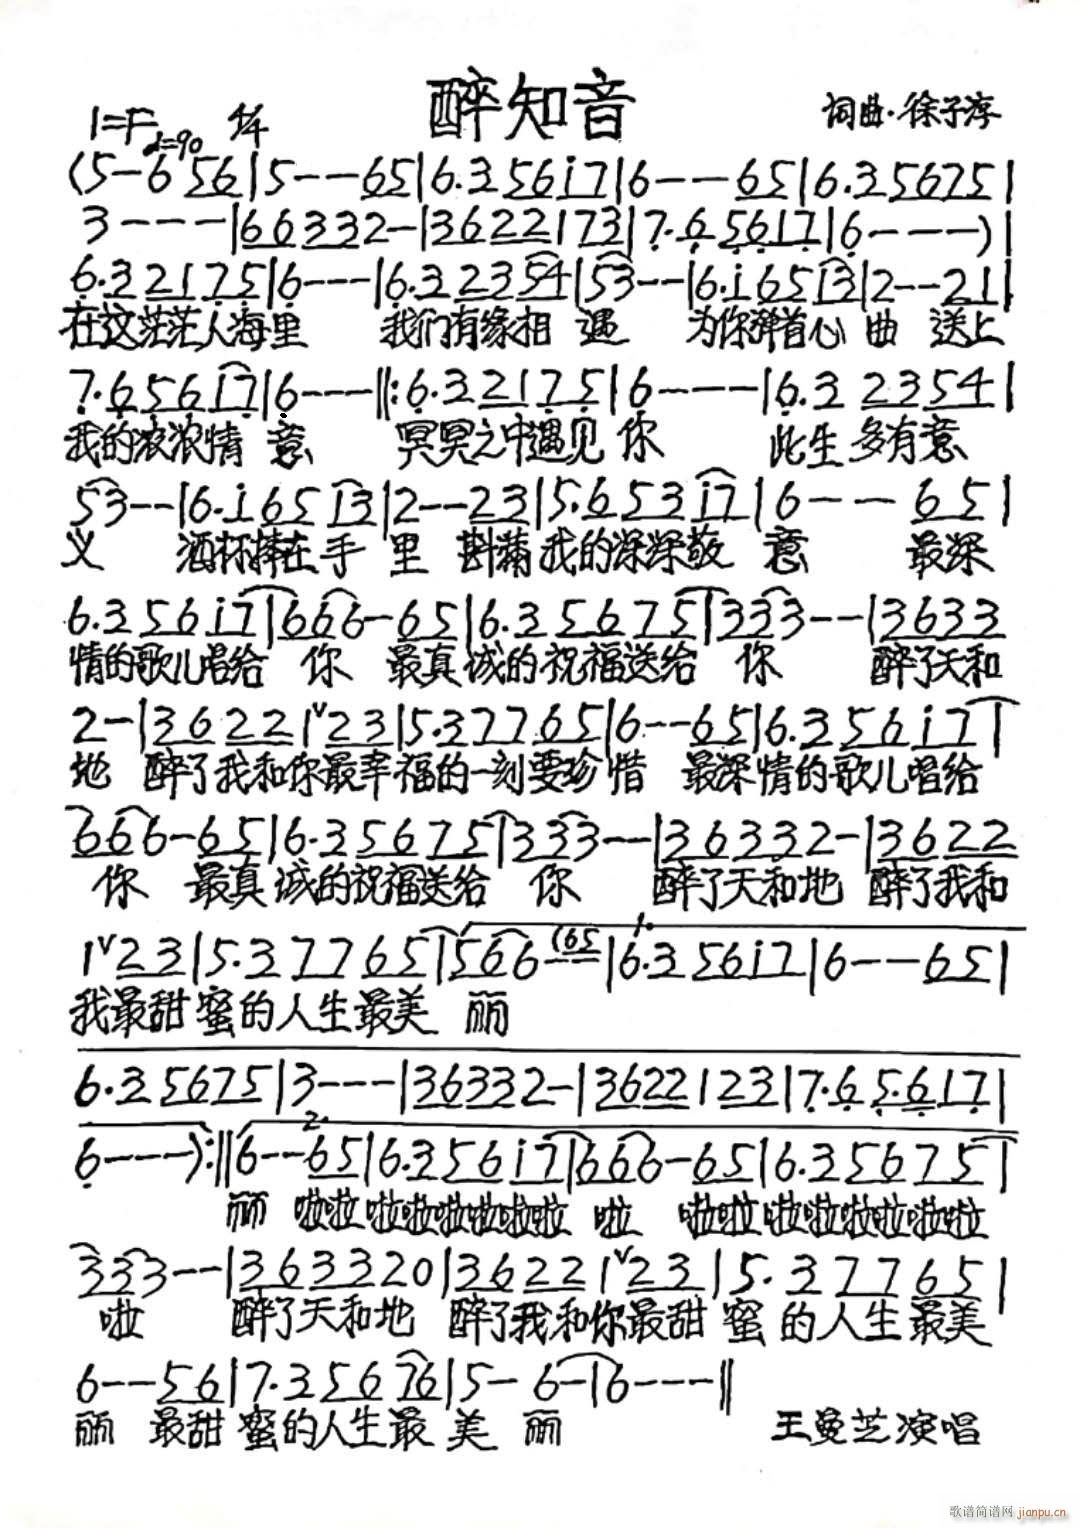 醉知音
1=F ♩=90 4/4 词曲·徐子淳
(5-6 56|5---65|6.35617|6---65|6.35675|
3----|66332-|3622173|7.65617|6----)|
6.32175|6---|6.32354|53--|6.16513|2--21|
在这茫茫人海里 我们有缘相遇 为你弹首心曲 送上
7.65617|6---‖:6.32175|6----|6.32354|
我的浓浓情意 冥冥之中遇见你 此生多有意
53--|6.16513|2--23|5.65317|6---65|
义 酒杯捧在手里 斟满我的深深敬意 最深
6.35617|666-65|6.35675|333--|3633
情的歌儿唱给你 最真诚的祝福送给你 醉了天和
2-|36221ᵛ23|5.37765|6--65|6.35617|
地 醉了我和你最幸福的一刻要珍惜 最深情的歌儿唱给
666-65|6.35675|333--|36332-|3622
你 最真诚的祝福送给你 醉了天和地 醉了我和
1ᵛ23|5.37765|566--(65|1.6.35617|6--65|
我最甜蜜的人生最美丽
6.35675|3---|36332-|3622123|7.65.617|
6----):‖2.6--65|6.35617|666-65|6.35675|
丽 啦啦啦啦啦啦啦啦 啦 啦啦啦啦啦啦啦啦
333--|363320|36221ᵛ23|5.37765|
啦 醉了天和地 醉了我和你最甜蜜的人生最美
6--56|7.35676|5-6-|6----‖
丽 最甜蜜的人生最美丽 王曼芝演唱
歌谱简谱网 jianpu.cn